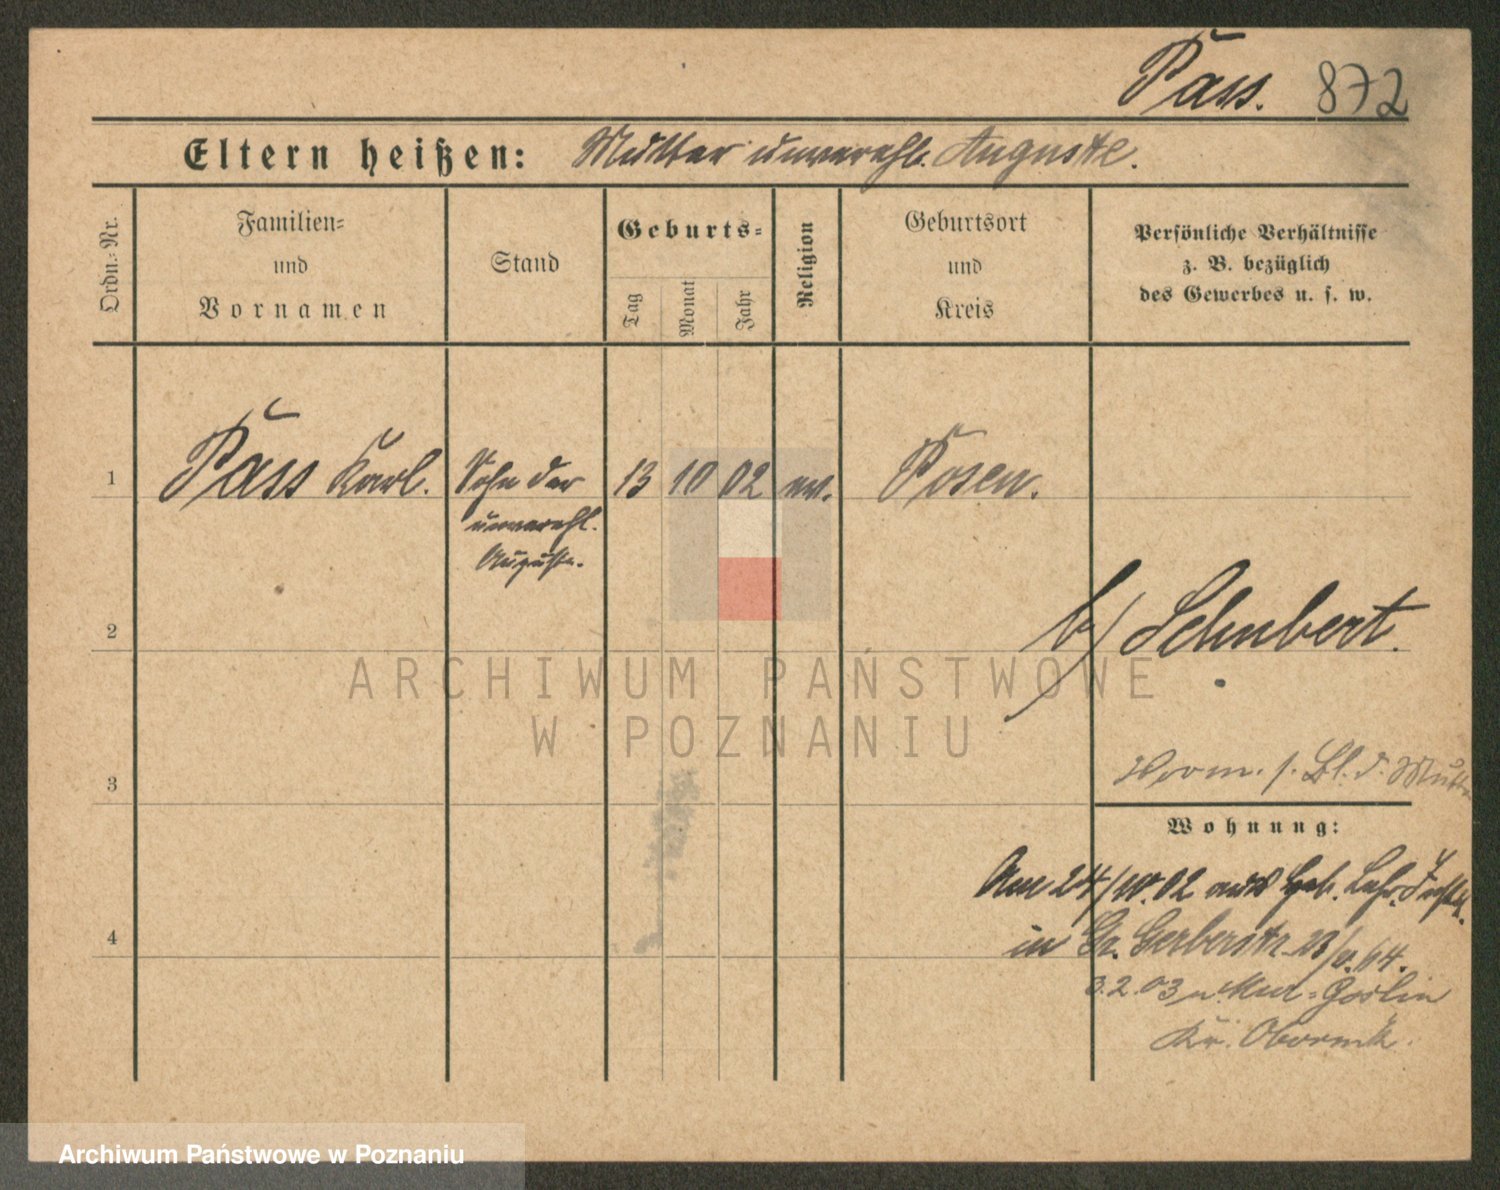 Pass. 872
Eltern heißen: Mutter unverehl. Auguste.
Ordn.-Nr.
Familien-
und
Vornamen
Stand
Geburts-
Tag
Monat
Jahr
Religion
Geburtsort
und
Kreis
Persönliche Verhältnisse
z. B. bezüglich
des Gewerbes u. s. w.
1 Pass Karl. Sohn der 13 10 02 ev. Posen.
unverehl.
Auguste.
2
b/ Schubert.
ARCHIWUM PAŃSTWOWE
W POZNANIU
3
Vorm. s. Bl. d. Mutter
Wohnung:
Am 24/10.02 aus Heb. Lehr.
4
in Gr. Gerberstr. 23/v. 64.
3.2.03 n. Mur-Goslin
Kr. Obornik.
Archiwum Państwowe w Poznaniu